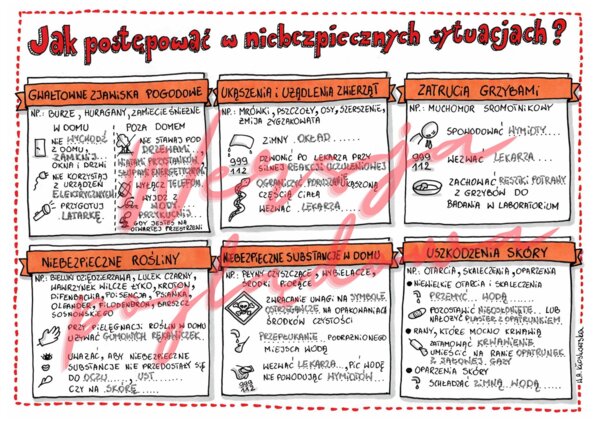 Jak postępować w niebezpiecznych sytuacjach?
GWAŁTOWNE ZJAWISKA POGODOWE
NP.: BURZE, HURAGANY, ZAMIECIE ŚNIEŻNE
W DOMU
NIE WYCHODŹ
Z DOMU,
ZAMKNIJ
OKNA I DRZWI
NIE KORZYSTAJ
Z URZĄDZEŃ
ELEKTRYCZNYCH
PRZYGOTUJ
LATARKĘ
POZA DOMEM
NIE STAWAJ POD
DRZEWAMI
WIATAMI PRZYSTANKÓW,
SŁUPAMI ENERGETYCZNYMI
WYŁĄCZ TELEFON
WYJDŹ Z
WODY
PRZYKUCNIJ
GDY JESTEŚ NA
OTWARTEJ PRZESTRZENI
UKĄSZENIA I UŻĄDLENIA ZWIERZĄT
NP.: MRÓWKI, PSZCZOŁY, OSY, SZERSZENIE,
ŻMIJA ZYGZAKOWATA
ZIMNY OKŁAD
999
112
DZWONIĆ PO LEKARZA PRZY
SILNEJ REAKCJI UCZULENIOWEJ
OGRANICZYĆ PORUSZANIE UKĄSZONĄ
CZĘŚCIĄ CIAŁA
WEZWAĆ LEKARZA
ZATRUCIA GRZYBAMI
NP.: MUCHOMOR SROMOTNIKOWY
SPOWODOWAĆ WYMIOTY
999
112
WEZWAĆ LEKARZA
ZACHOWAĆ RESZTKI POTRAWY
Z GRZYBÓW DO
BADANIA W LABORATORIUM
NIEBEZPIECZNE ROŚLINY
NP.: BIELUŃ DZIĘDZIERZAWA, LULEK CZARNY,
WAWRZYNEK WILCZE ŁYKO, KROTON,
DIFENBACHIA, POINSENCJA, PSIANKA,
OLEANDER, FILODENDRON, BARSZCZ
SOSNOWSKIEGO
PRZY PIELĘGNACJI ROŚLIN W DOMU
UŻYWAĆ GUMOWYCH RĘKAWICZEK
UWAŻAĆ, ABY NIEBEZPIECZNE
SUBSTANCJE NIE PRZEDOSTAŁY SIĘ
DO OCZU, UST
CZY NA SKÓRĘ
NIEBEZPIECZNE SUBSTANCJE W DOMU
NP.: PŁYNY CZYSZCZĄCE, WYBIELACZE,
ŚRODKI PIORĄCE
ZWRACANIE UWAGI NA SYMBOLE
OSTRZEGAWCZE NA OPAKOWANIACH
ŚRODKÓW CZYSTOŚCI
PRZEPŁUKANIE PODRAŻNIONEGO
MIEJSCA WODĄ
999
112
WEZWAĆ LEKARZA, PIĆ WODĘ
NIE POWODUJĄC WYMIOTÓW
USZKODZENIA SKÓRY
NP.: OTARCIA, SKALECZENIA, OPARZENIA
• NIEWIELKIE OTARCIA I SKALECZENIA
PRZEMYĆ WODĄ
POZOSTAWIĆ NIEOSŁONIĘTE LUB
NAŁOŻYĆ PLASTER Z OPATRUNKIEM
• RANY, KTÓRE MOCNO KRWAWIĄ
ZATAMOWAĆ KRWAWIENIE
UMIEŚCIĆ NA RANIE OPATRUNEK
Z JAŁOWEJ GAZY
• OPARZENIA SKÓRY
SCHŁADZAĆ ZIMNĄ WODĄ